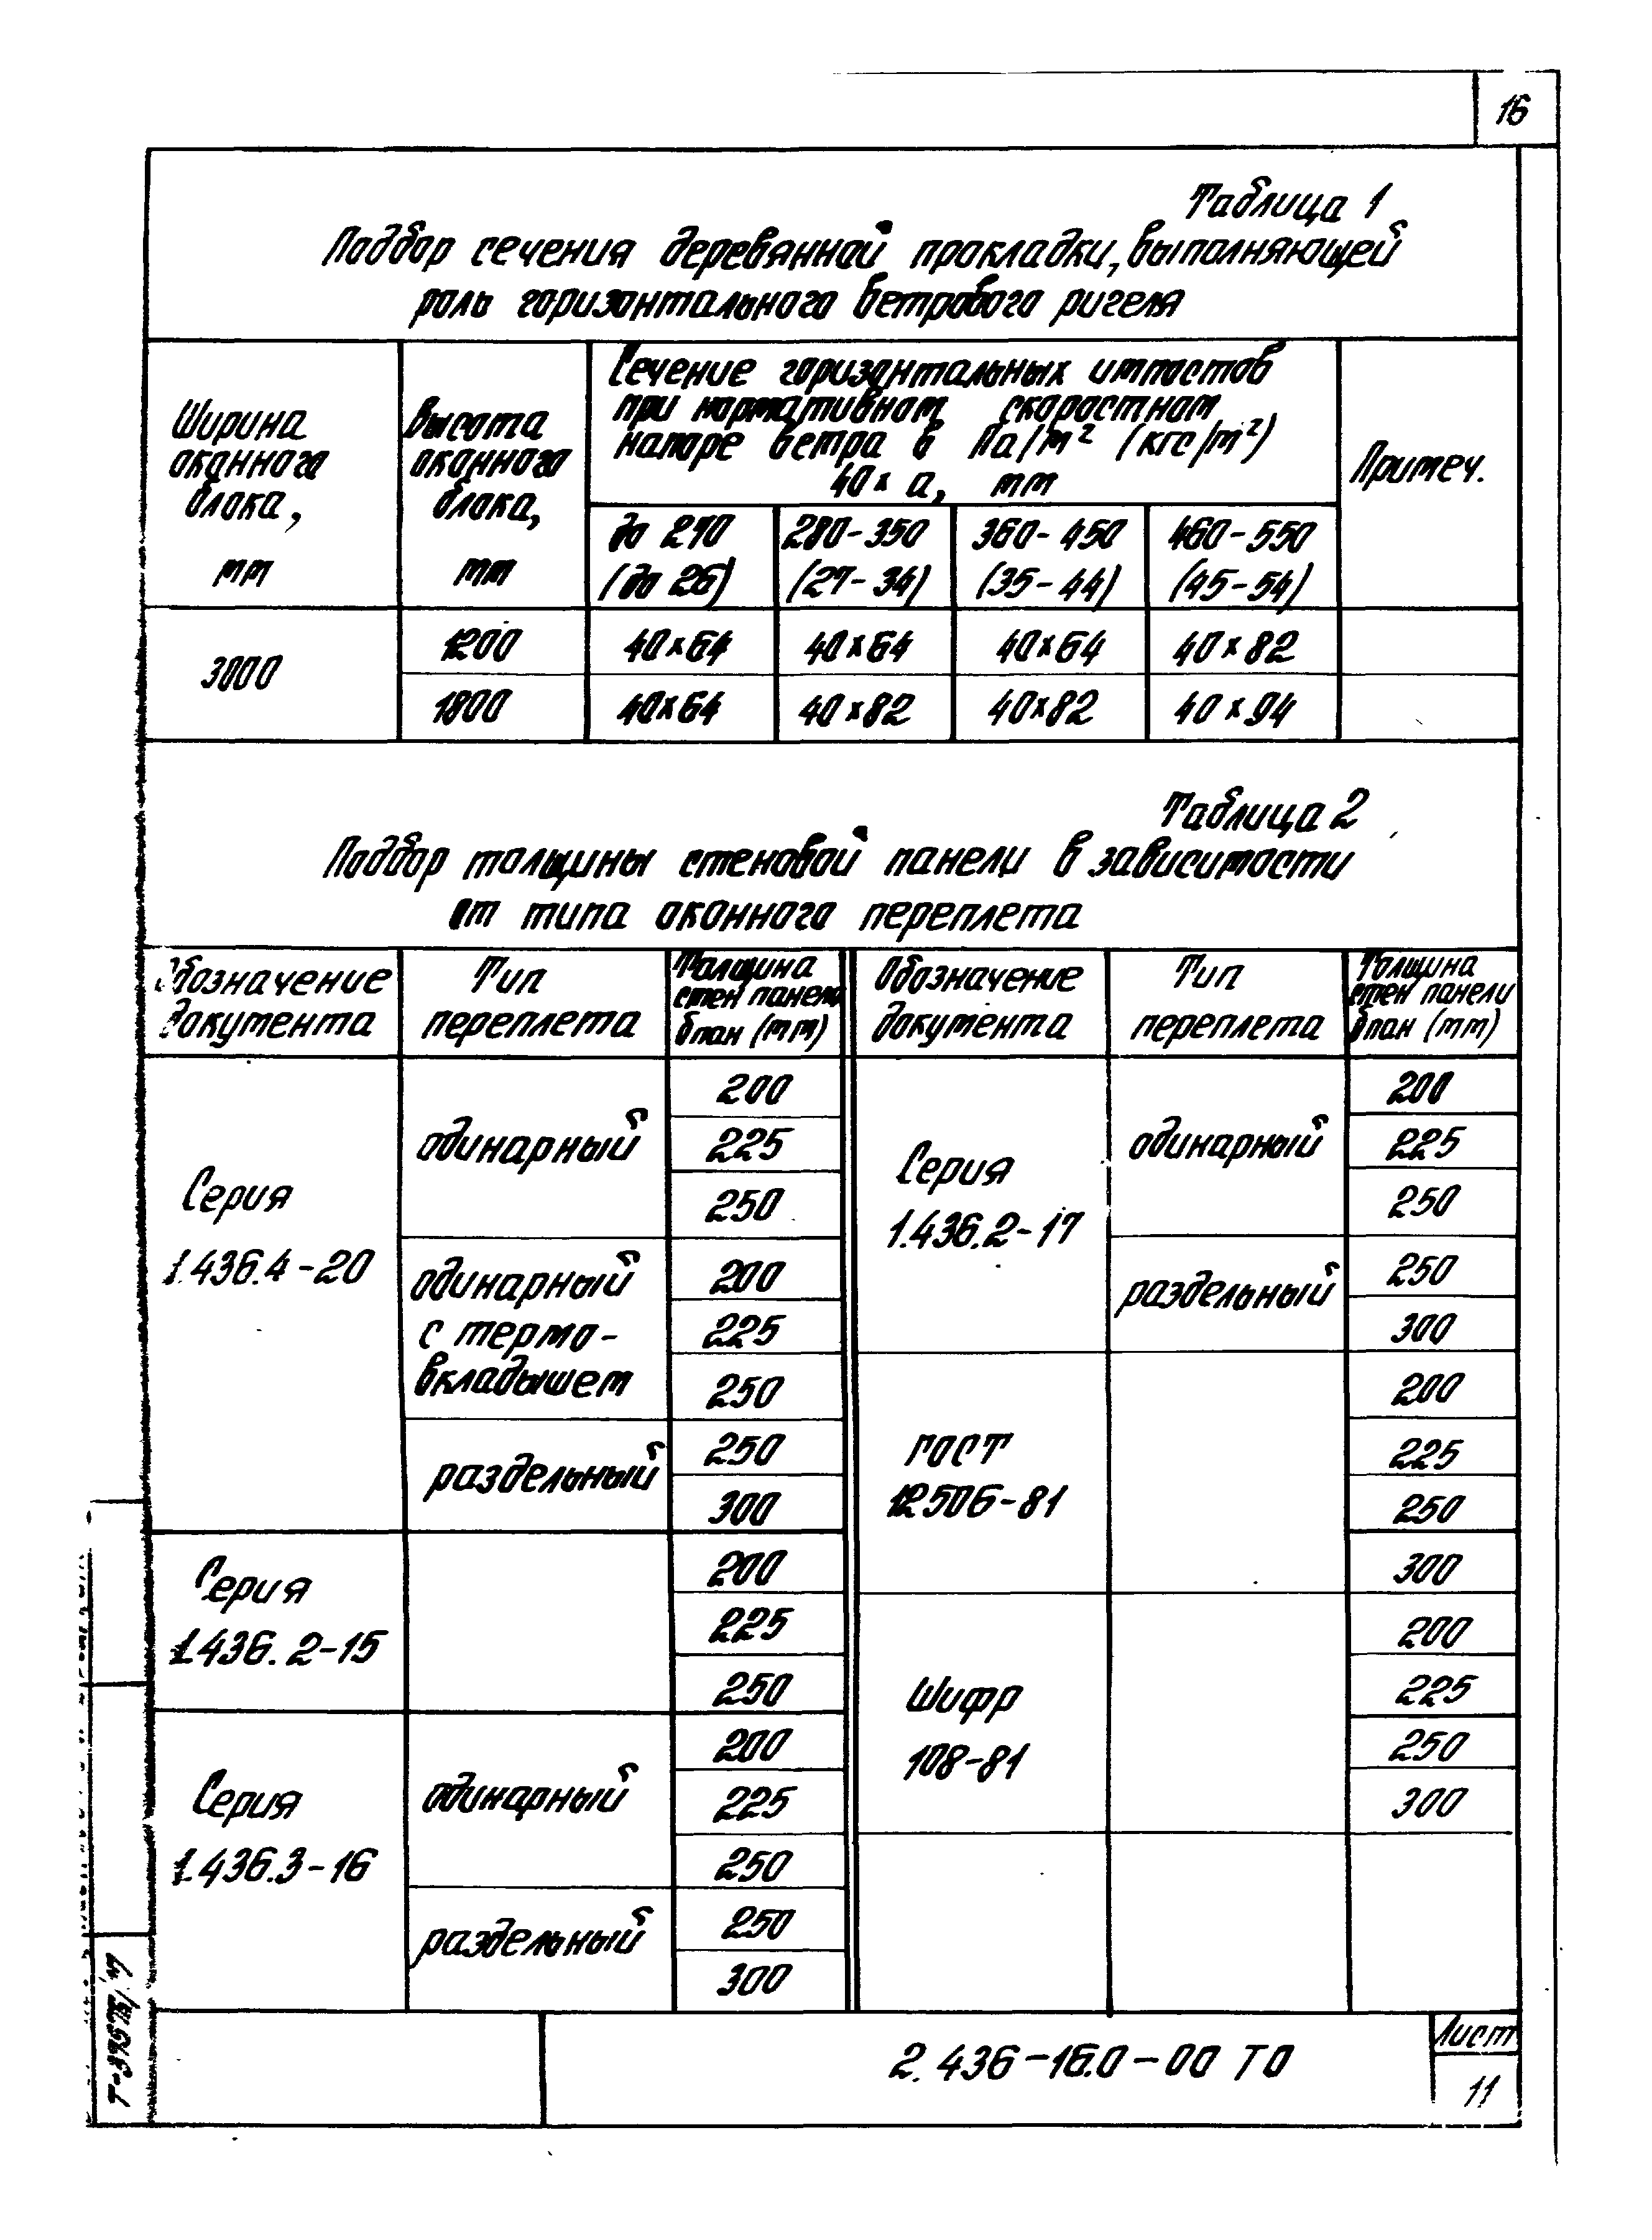 16
Таблица 1
Подбор сечения деревянной прокладки, выполняющей
роль горизонтального ветрового ригеля
Ширина
оконного
блока,
мм
Высота
оконного
блока,
мм
Сечение горизонтальных импостов
при нормативном скоростном
напоре ветра в Па/м² (кгс/м²)
40 х а, мм
Примеч.
до 270
(до 26)
280-350
(27-34)
360-450
(35-44)
460-550
(45-54)
3000
1200
40х64
40х64
40х64
40х82
1800
40х64
40х82
40х82
40х94
Таблица 2
Подбор толщины стеновой панели в зависимости
от типа оконного переплета
Обозначение
документа
Тип
переплета
Толщина
стен панели
δпан (мм)
Обозначение
документа
Тип
переплета
Толщина
стен панели
δпан (мм)
Серия
1.436.4-20
одинарный
200
225
250
одинарный
с термо-
вкладышем
200
225
250
раздельный
250
300
Серия
1.436.2-15
200
225
250
Серия
1.436.3-16
одинарный
200
225
250
раздельный
250
300
Серия
1.436.2-17
одинарный
200
225
250
раздельный
250
300
ГОСТ
12506-81
200
225
250
300
Шифр
108-81
200
225
250
300
2.436-16.0-00 ТО
Лист
11